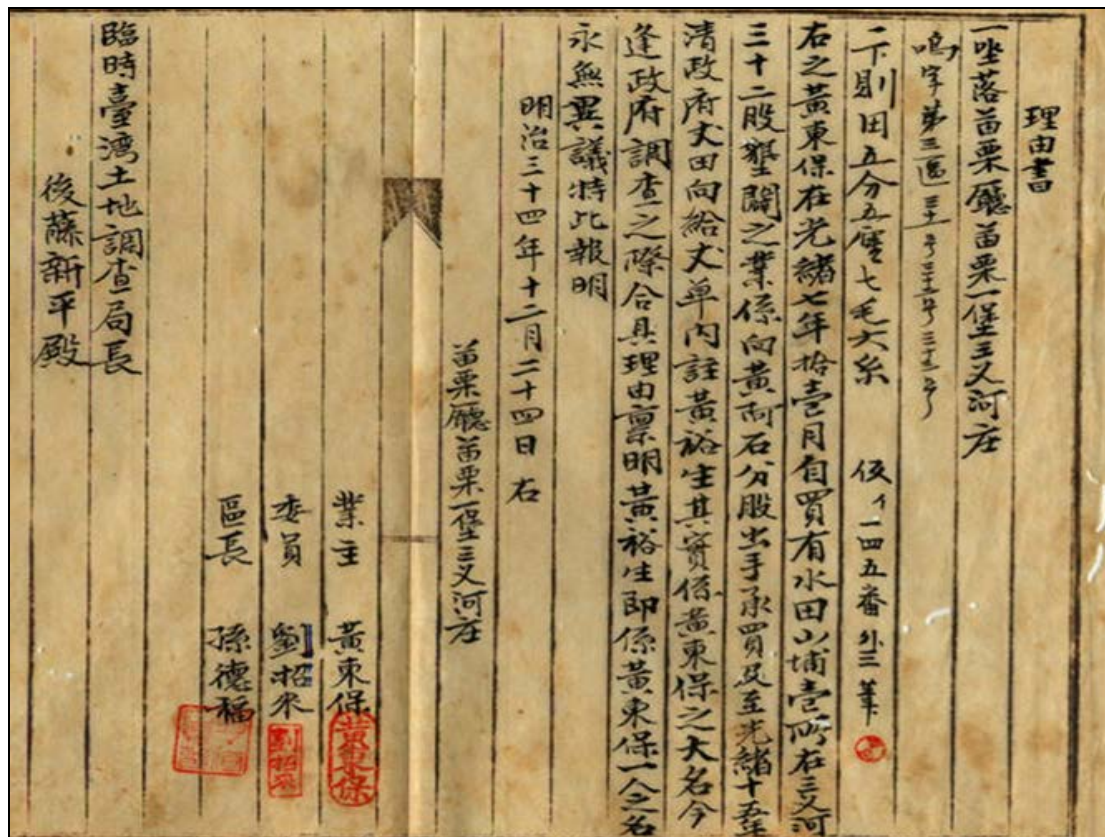 理由書
一坐落苗栗廳苗栗一堡三叉河庄
鳴字第三區三十一号三十二号三十三号
一下則田五分五厘七毛六糸 仮イ一四五番外三筆
右之黃東保在光緒七年拾壹月自買有水田山埔壹所在三叉河
三十二股墾闢之業係向黃南石分股出手承買及至光緒十五年
清政府丈田向給丈單內註黃裕生其實係黃東保之大名今
逢政府調查之際合具理由稟明黃裕生即係黃東保一人之名
永無異議特此報明
明治三十四年十二月二十四日右
苗栗廳苗栗一堡三叉河庄
業主 黃東保
黃東保
委員 劉招來
劉招來
區長 孫德福
臨時臺湾土地調查局長
後藤新平殿